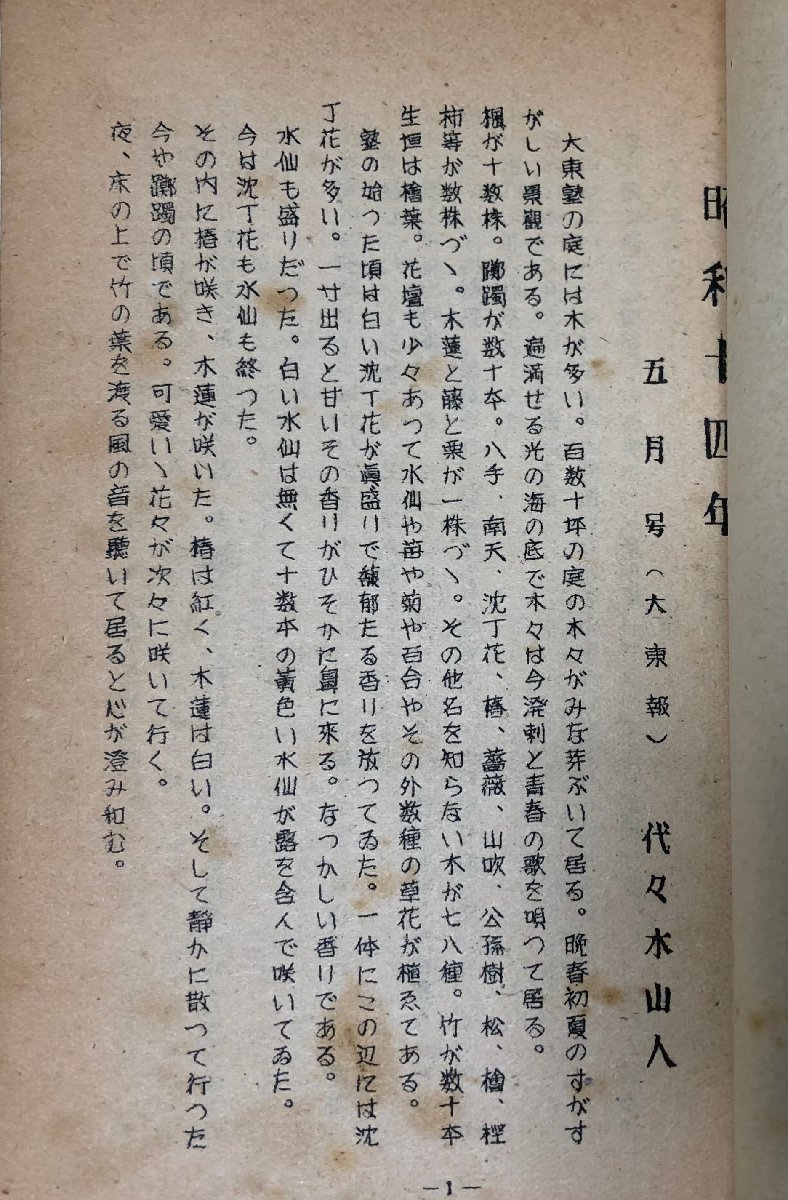 昭和十四年
五月号(大東報) 代々木山人
大東塾の庭には木が多い。百数十坪の庭の木々がみな芽ぶいて居る。晩春初夏のすがす
がしい景観である。遍満せる光の海の底で木々は今溌剌と青春の歌を唄つて居る。
楓が十数株。躑躅が数十本。八手、南天、沈丁花、椿、薔薇、山吹、公孫樹、松、檜、樫
柿等が数株づゝ。木蓮と藤と栗が一株づゝ。その他名を知らない木が七八種。竹が数十本
生垣は檜葉。花壇も少々あつて水仙や苗や菊や百合やその外数種の草花が植ゑてある。
塾の始つた頃は白い沈丁花が眞盛りで馥郁たる香りを放つてゐた。一体にこの辺には沈
丁花が多い。一寸出ると甘いその香りがひそかに鼻に來る。なつかしい香りである。
水仙も盛りだつた。白い水仙は無くて十数本の黄色い水仙が露を含んで咲いてゐた。
今は沈丁花も水仙も終つた。
その内に椿が咲き、木蓮が咲いた。椿は紅く、木蓮は白い。そして静かに散つて行つた
今や躑躅の頃である。可愛いゝ花々が次々に咲いて行く。
夜、床の上で竹の葉を渡る風の音を聽いて居ると心が澄み和む。
—1—